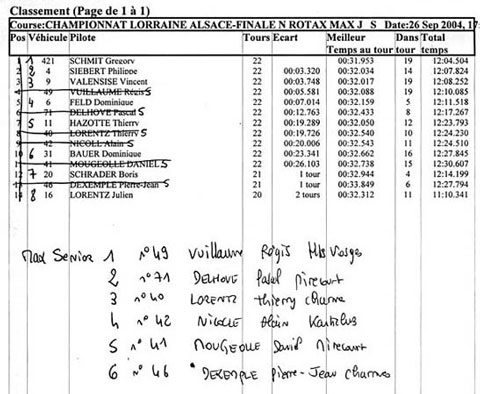 Classement (Page de 1 à 1)
Course:CHAMPIONNAT LORRAINE ALSACE-FINALE N ROTAX MAX J S Date:26 Sep 2004, 17:
Pos Véhicule Pilote Tours Ecart Meilleur Dans Total
Temps au tour tour temps
1 1 421 SCHMIT Gregory 22 00:31.953 19 12:04.504
2 2 4 SIEBERT Philippe 22 00:03.320 00:32.034 14 12:07.824
3 3 9 VALENSISE Vincent 22 00:03.748 00:32.017 19 12:08.252
4 49 VUILLAUME Régis S 22 00:05.581 00:32.088 19 12:10.085
5 4 6 FELD Dominique 22 00:07.014 00:32.159 5 12:11.518
6 71 DELHOVE Pascal S 22 00:12.763 00:32.433 8 12:17.267
7 5 11 HAZOTTE Thierry 22 00:19.289 00:32.050 12 12:23.793
8 40 LORENTZ Thierry S 22 00:19.726 00:32.540 10 12:24.230
9 42 NICOLL Alain S 22 00:20.006 00:32.543 11 12:24.510
10 6 31 BAUER Dominique 22 00:23.341 00:32.662 16 12:27.845
11 41 MOUGEOLLE DANIEL S 22 00:26.103 00:32.738 15 12:30.607
12 7 20 SCHRADER Boris 21 1 tour 00:32.944 4 12:14.199
13 46 DEXEMPLE Pierre-Jean S 21 1 tour 00:33.849 6 12:27.794
14 8 16 LORENTZ Julien 20 2 tours 00:32.312 11 11:10.341
Max Senior 1 n°49 Vuillaume Régis Hts Vosges
2 n°71 DELHOVE Pascal Mirecourt
3 n°40 LORENTZ Thierry Charme
4 n°42 NICOLLE Alain
5 n°41 MOUGEOLLE David Mirecourt
6 n°46 DEXEMPLE Pierre-Jean Charmes